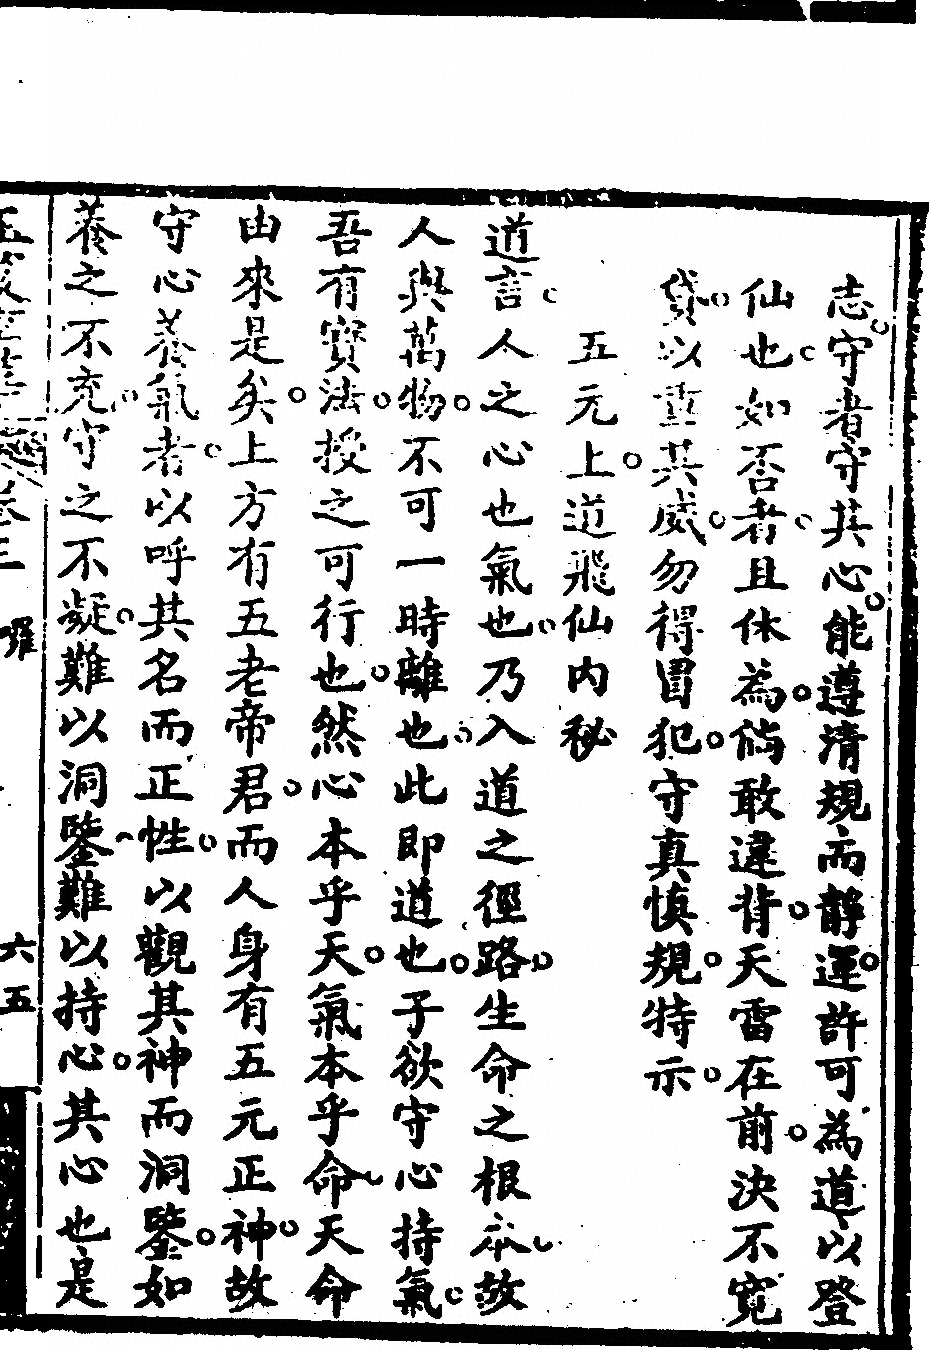 志守者守其心能遵清規而靜運許可為道以登
仙也如否者且休為倘敢違背天雷在前決不寬
貸以重其威勿得冒犯守真慎規特示
五元上道飛仙內秘
道言人之心也氣也乃入道之徑路生命之根本故
人與萬物不可一時離也此即道也子欲守心持氣
吾有寶法授之可行也然心本乎天氣本乎命天命
由來是矣上方有五老帝君而人身有五元正神故
守心養氣者以呼其名而正性以觀其神而洞鑒如
養之不充守之不凝難以洞鑒難以持心其心也是
卷三 六五